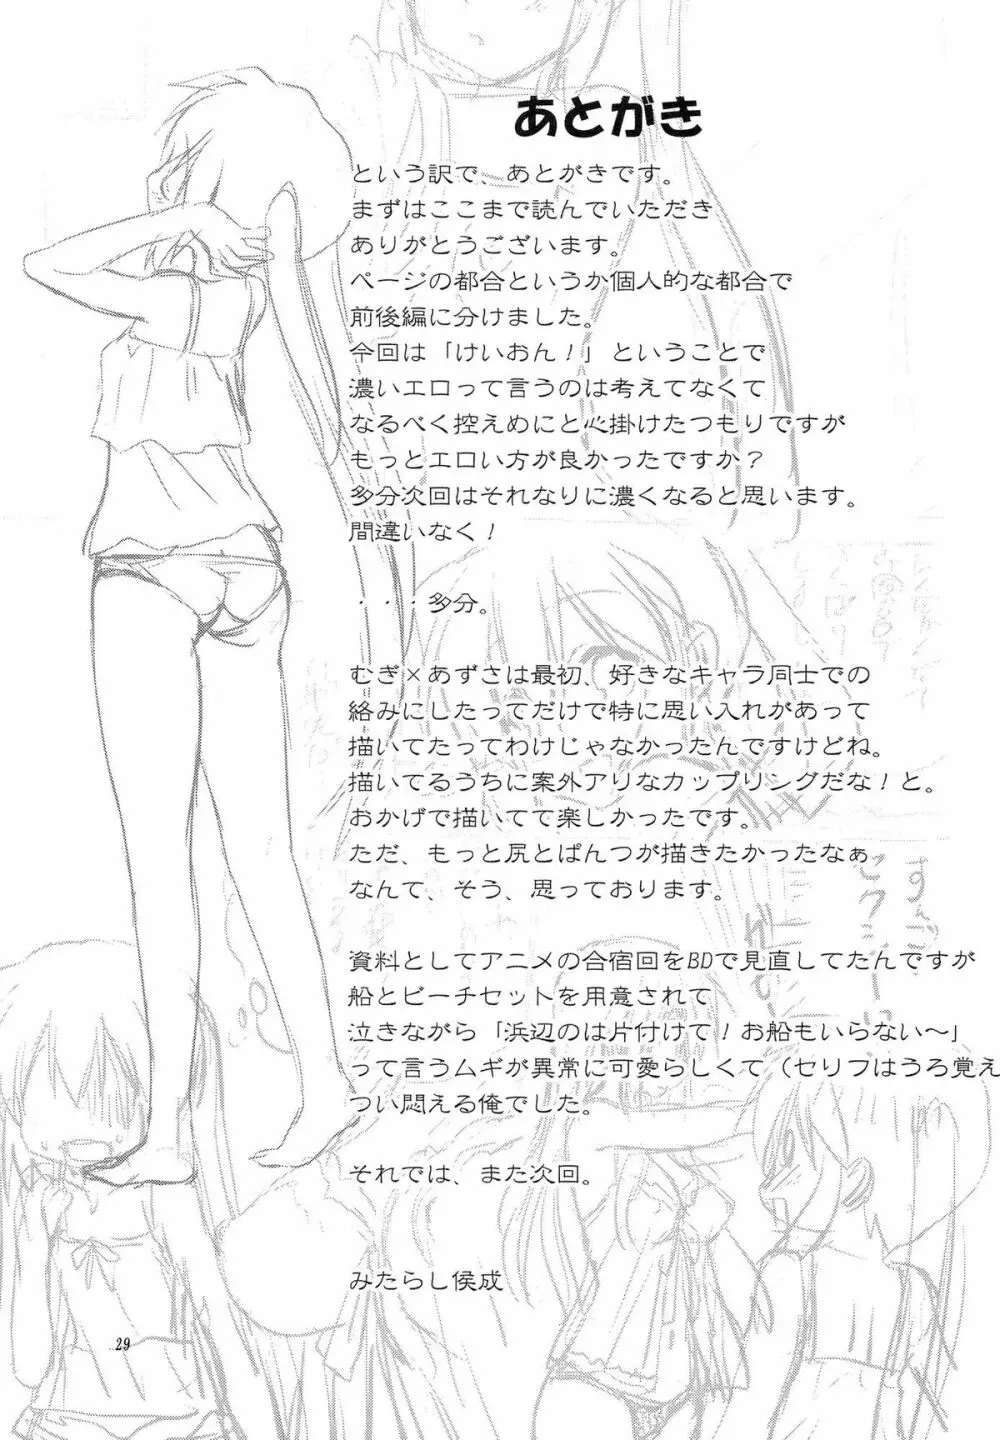 あとがき
という訳で、あとがきです。
まずはここまで読んでいただき
ありがとうございます。
ページの都合というか個人的な都合で
前後編に分けました。
今回は「けいおん！」ということで
濃いエロって言うのは考えてなくて
なるべく控えめにと心掛けたつもりですが
もっとエロい方が良かったですか？
多分次回はそれなりに濃くなると思います。
間違いなく！
・・・多分。
むぎ×あずさは最初、好きなキャラ同士での
絡みにしたってだけで特に思い入れがあって
描いてたってわけじゃなかったんですけどね。
描いてるうちに案外アリなカップリングだな！と。
おかげで描いてて楽しかったです。
ただ、もっと尻とぱんつが描きたかったなぁ
なんて、そう、思っております。
資料としてアニメの合宿回をBDで見直してたんですが
船とビーチセットを用意されて
泣きながら「浜辺のは片付けて！お船もいらない～」
って言うムギが異常に可愛らしくて（セリフはうろ覚え
つい悶える俺でした。
それでは、また次回。
みたらし侯成
29